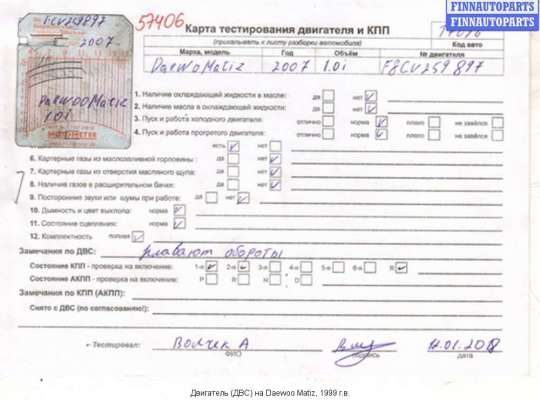 FINNAUTOPARTS
FINNAUTOPARTS
F8CV259897
2007
DAEWOO Matiz
1.0i
57406
Карта тестирования двигателя и КПП
(прикалывать к листу разборки автомобиля)
Код авто
Марка, модель Год Объём № двигателя
DAEWOO Matiz 2007 1.0i F8CV259897
1. Наличие охлаждающей жидкости в масле: да нет
2. Наличие масла в охлаждающей жидкости: да нет
3. Пуск и работа холодного двигателя: отлично норма плохо не завёлся
4. Пуск и работа прогретого двигателя: отлично норма плохо не завёлся
есть нет
6. Картерные газы из маслозаливной горловины: да нет
7. Картерные газы из отверстия масляного щупа: да нет
8. Наличие газов в расширительном бачке: да нет
9. Посторонние звуки или шумы при работе: да нет
10. Дымность и цвет выхлопа: норма
11. Состояние сцепления: норма
12. Комплектность полная
Замечания по ДВС: плавают обороты
Состояние КПП - проверка на включение: 1-я 2-я 3-я 4-я 5-я R
Состояние АКПП - проверка на включение: P R N D
Замечания по КПП (АКПП):
Снято с ДВС (по согласованию):
Тестировал: Волчек А
ФИО подпись дата
Двигатель (ДВС) на Daewoo Matiz, 1999 г.в.